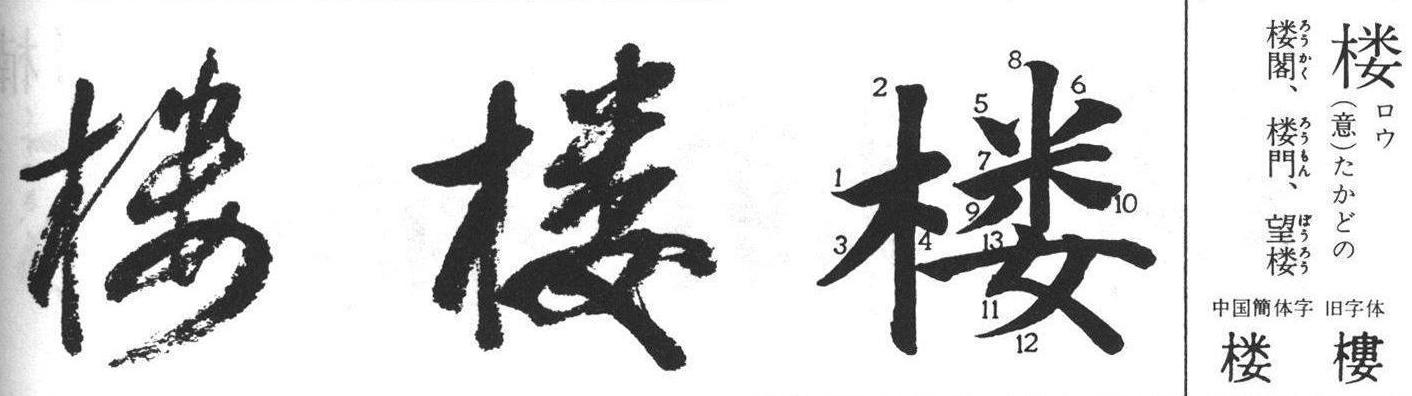 楼 ロウ
(意)たかどの
楼閣、楼門、望楼
ろうかく ろうもん ぼうろう
旧字体
樓
中国簡体字
楼
楼
1 2 3 4 5 6 7 8 9 10 11 12 13
楼
楼